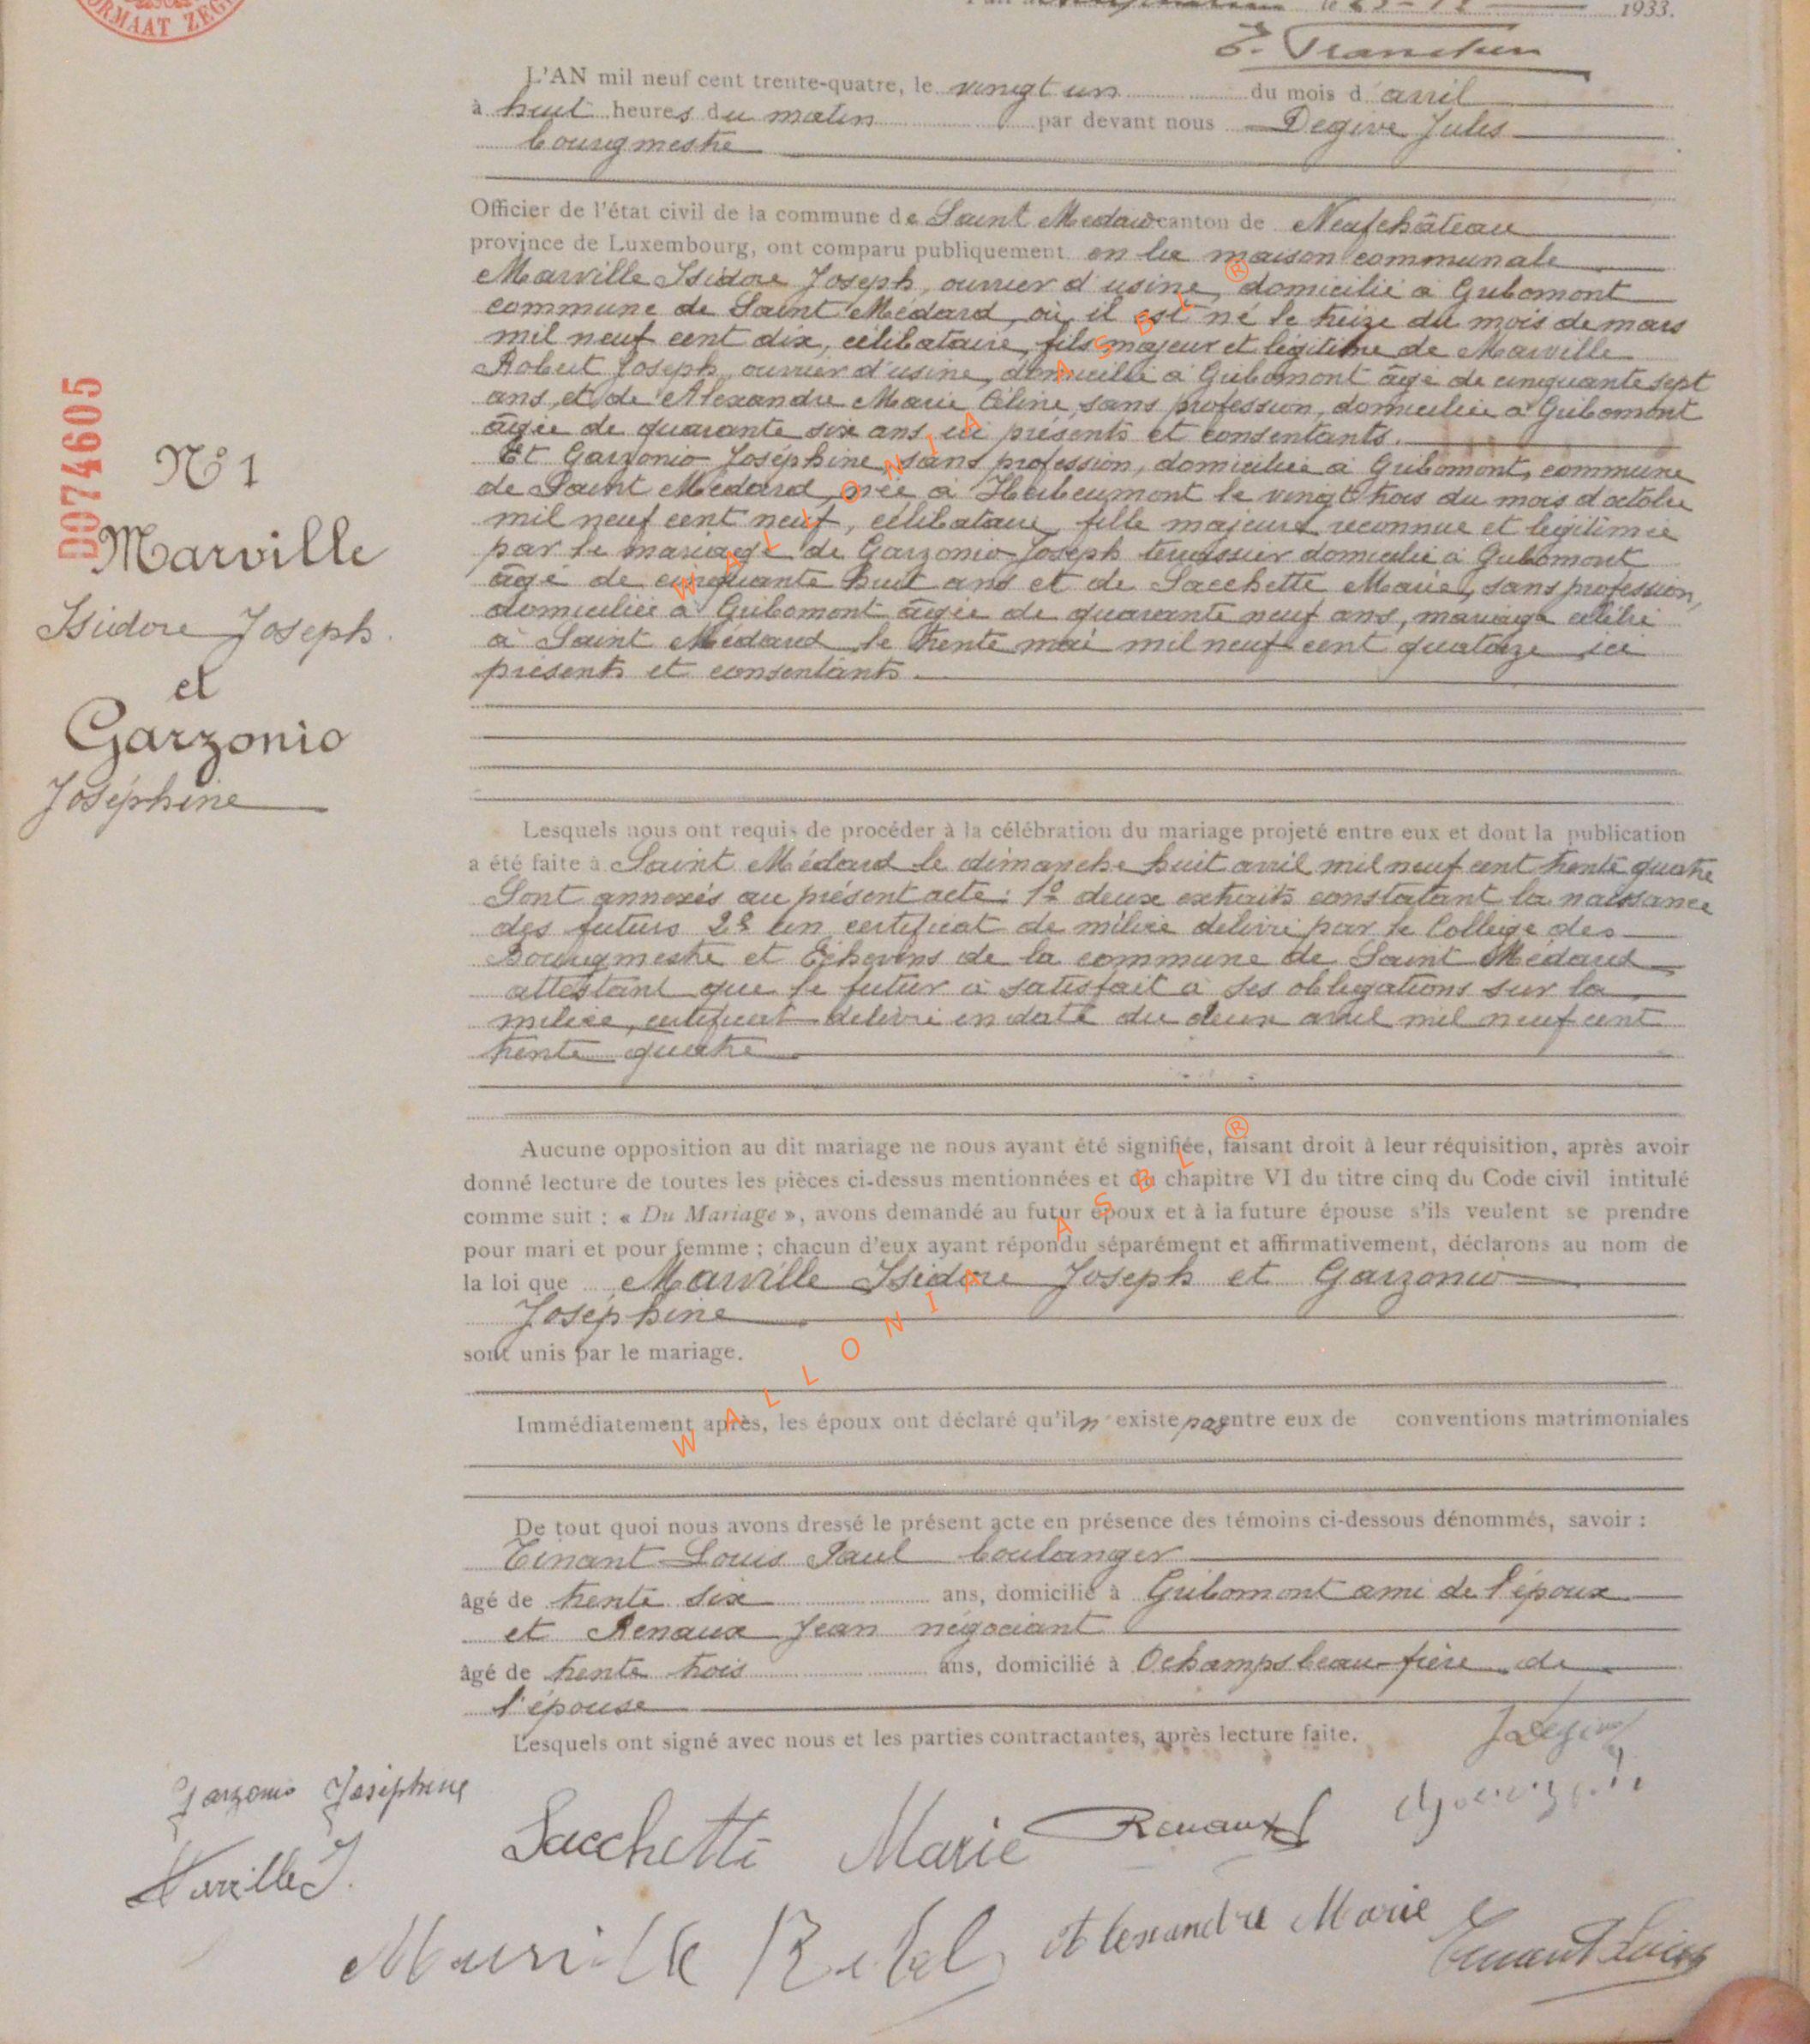 ORMAAT ZEG
le 23-12 1933.
L'AN mil neuf cent trente-quatre, le vingt un du mois d'avril
à huit heures du matin par devant nous Degive Jules
bourgmestre
Officier de l'état civil de la commune de Saint Médard canton de Neufchâteau
province de Luxembourg, ont comparu publiquement en la maison communale
Marville Isidore Joseph, ouvrier d'usine, domicilié à Gribomont
commune de Saint Médard, où il est né le treize du mois de mars
mil neuf cent dix, célibataire, fils majeur et légitime de Marville
Robert Joseph, ouvrier d'usine, domicilié à Gribomont âgé de cinquante sept
ans, et de Alexandre Marie Céline, sans profession, domiciliée à Gribomont
âgée de quarante six ans ici présents et consentants.
Et Garzonio Joséphine, sans profession, domiciliée à Gribomont, commune
de Saint Médard, née à Herbeumont le vingt trois du mois d'octobre
mil neuf cent neuf, célibataire, fille majeure reconnue et légitimée
par le mariage de Garzonio Joseph terrassier domicilié à Gribomont
âgé de cinquante huit ans et de Sacchette Marie, sans profession,
domiciliée à Gribomont âgée de quarante neuf ans, mariage célébré
à Saint Médard le trente mai mil neuf cent quatorze ici
présents et consentants.
D074605
N° 1
Marville
Isidore Joseph.
et
Garzonio
Joséphine
Lesquels nous ont requis de procéder à la célébration du mariage projeté entre eux et dont la publication
a été faite à Saint Médard le dimanche huit avril mil neuf cent trente quatre
Sont annexés au présent acte : 1° deux extraits constatant la naissance
des futurs 2° un certificat de milice délivré par le Collège des
Bourgmestre et Echevins de la commune de Saint Médard
attestant que le futur a satisfait à ses obligations sur la
milice, certificat délivré en date du deux avril mil neuf cent
trente quatre
Aucune opposition au dit mariage ne nous ayant été signifiée, faisant droit à leur réquisition, après avoir
donné lecture de toutes les pièces ci-dessus mentionnées et du chapitre VI du titre cinq du Code civil intitulé
comme suit : « Du Mariage », avons demandé au futur époux et à la future épouse s'ils veulent se prendre
pour mari et pour femme ; chacun d'eux ayant répondu séparément et affirmativement, déclarons au nom de
la loi que Marville Isidore Joseph et Garzonio
Joséphine
sont unis par le mariage.
Immédiatement après, les époux ont déclaré qu'il n'existe pas entre eux de conventions matrimoniales
De tout quoi nous avons dressé le présent acte en présence des témoins ci-dessous dénommés, savoir :
Tinant Louis Paul boulanger
âgé de trente six ans, domicilié à Gribomont ami de l'époux
et Renaux Jean négociant
âgé de trente trois ans, domicilié à Ochamps beau-frère de
l'épouse
Lesquels ont signé avec nous et les parties contractantes, après lecture faite.
Garzonio Joséphine
Sacchetti Marie Renaux J
Marville J.
Alexandre Marie
Tinant Louis
WALLONIA ASBL ®
WALLONIA ASBL ®